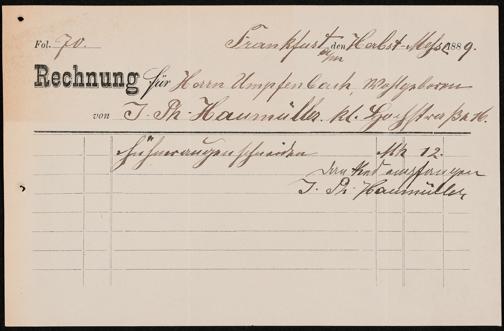 Fol. 70. Frankfurt a/M den Herbst-Messe 1889.
Rechnung für Herrn Umpfenbach, Wohlgeboren
von J. Ph. Haumüller. kl. Hochstraße 16.
Hühneraugenschneiden Mk 12.
Dankend empfangen
J. Ph. Haumüller